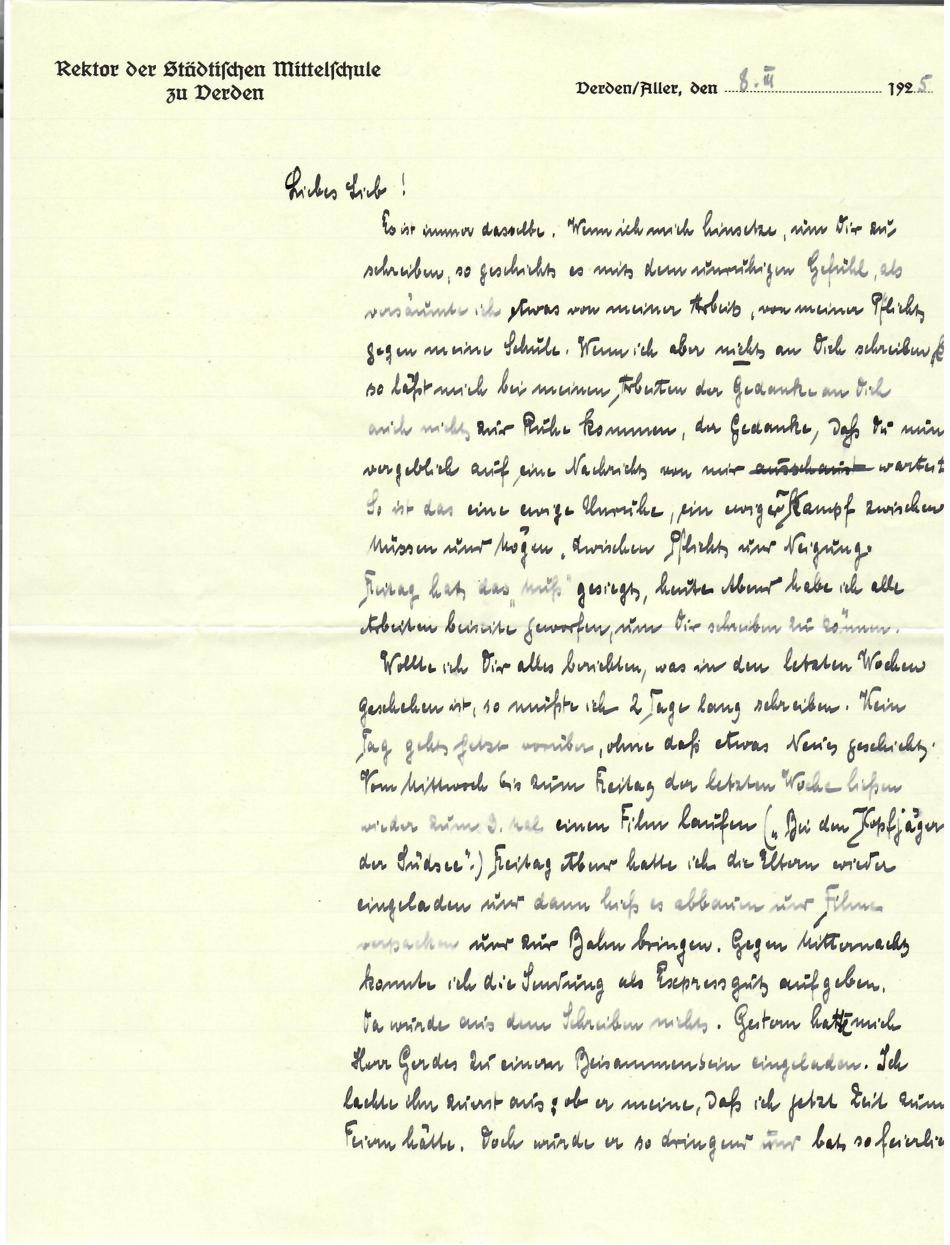 Rektor der Städtischen Mittelschule
zu Verden
Verden/Aller, den 8. III 1925
Liebes Lieb !
Es ist immer dasselbe. Wenn ich mich hinsetze, um Dir zu
schreiben, so geschieht es mit dem unruhigen Gefühl, als
versäumte ich etwas von meiner Arbeit, von meiner Pflicht
gegen meine Schule. Wenn ich aber nicht an Dich schreiben,
so läßt mich bei meinen Arbeiten der Gedanke an Dich
auch nicht zur Ruhe kommen, der Gedanke, daß Du nun
vergeblich auf eine Nachricht von mir ausschaust wartest
So ist das eine ewige Unruhe, ein ewiger Kampf zwischen
Müssen und Mögen, zwischen Pflicht und Neigung.
Freitag hat das „Muß" gesiegt, heute Abend habe ich alle
Arbeiten beiseite geworfen, um Dir schreiben zu können.
Wollte ich Dir alles berichten, was in den letzten Wochen
geschehen ist, so müßte ich 2 Tage lang schreiben. Kein
Tag geht jetzt vorüber, ohne daß etwas Neues geschieht.
Vom Mittwoch bis zum Freitag der letzten Woche ließen
wieder zum 3. Mal einen Film laufen („Bei den Kopfjäger
der Südsee".) Freitag Abend hatte ich die Eltern wieder
eingeladen und dann hieß es abbauen und Filme
verpacken und zur Bahn bringen. Gegen Mitternacht
konnte ich die Sendung als Expressgut aufgeben.
Da wurde aus dem Schreiben nichts. Gestern hatte mich
Herr Gerdes zu einem Beisammensein eingeladen. Ich
lachte ihn zuerst aus; ob er meine, daß ich jetzt Zeit zum
Feiern hätte. Doch wurde er so dringend und bat so feierlic